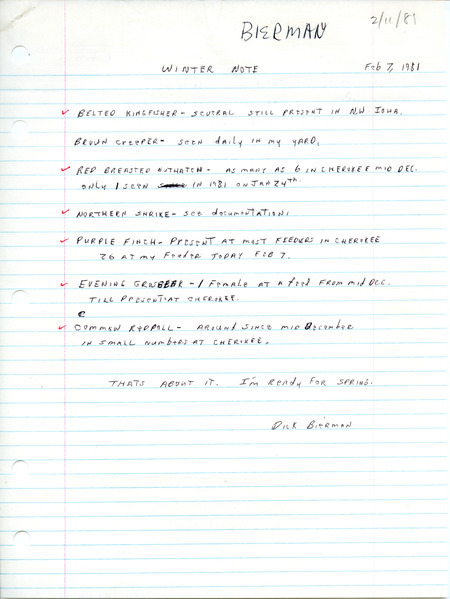 BIERMAN
2/11/81
WINTER NOTE Feb 7, 1981
BELTED KINGFISHER - SEVERAL STILL PRESENT IN N.W IOWA.
BROWN CREEPER - SEEN daily IN my YARD.
RED BREASTED NUTHATCH - AS MANY AS 6 IN CHEROKEE MID DEC.
ONLY 1 SEEN IN 1981 ON JAN 24th.
NORTHERN SHRIKE - SEE documentation.
PURPLE FINCH - PRESENT AT MOST FEEDERS IN CHEROKEE
26 AT my FEEDER TODAY FEB 7.
EVENING GROSBEEK - 1 Female AT A feed FROM mid DEC.
TILL PRESENT AT CHEROKEE.
COMMON REDPOLL - AROUND SINCE MID DECEMBER
IN SMALL NUMBERS AT CHEROKEE.
THATS ABOUT IT. I'M READY FOR SPRING.
DICK BIERMAN